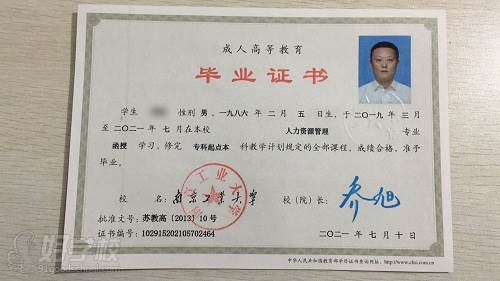 成人高等教育
毕业证书
学生 性别 男，一九八六 年 二 月 五 日生，于二〇一九 年 三 月
至 二〇二一 年 七 月在本校 人力资源管理 专业
函授 学习，修完 专科起点本 科教学计划规定的全部课程，成绩合格，准予
毕业。
校 名：南京工业大学 校（院）长：
批准文号：苏教高（2013）10号
证书编号：102915202105702464
二〇二一 年 七 月 十 日
中华人民共和国教育部学历证书查询网址：http://www.chsi.com.cn
好学校
91goodschool.com